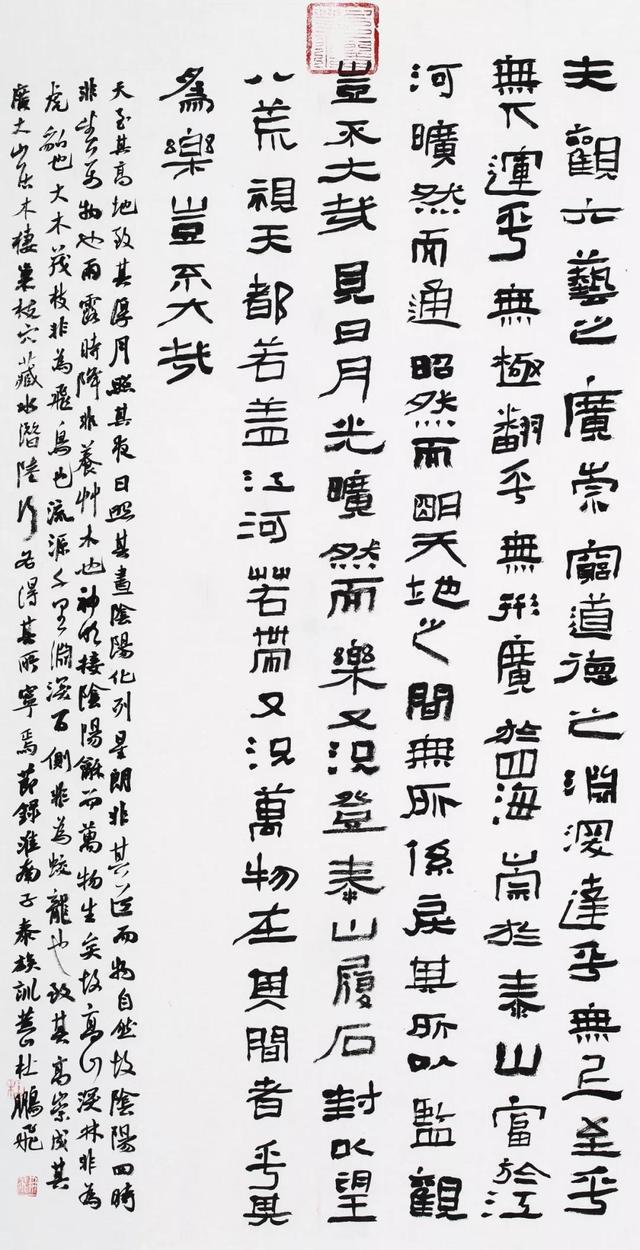 夫觀六藝之廣崇窮道德之淵深達乎無上至乎
無下運乎無極翻乎無形廣於四海崇於泰山富於江
河曠然而通昭然而明天地之間無所係戾其所以監觀
豈不大哉見日月光曠然而樂又況登泰山履石封以望
八荒視天都若盖江河若帶又況萬物在其間者乎其
為樂豈不大哉
天至其高地致其厚月照其夜日照其晝陰陽化列星朗非其道而物自然故陰陽四時
非生萬物也雨露時降非養艸木也神明接陰陽龢而萬物生矣故高山深林非為
虎豹也大木茂枝非為飛鳥也流源千里淵深百側非為蛟龍也致其高崇成其
廣大山居木棲巢枝穴藏水潛陸行各得其所寧焉節錄淮南子泰族訓杜鵬飛